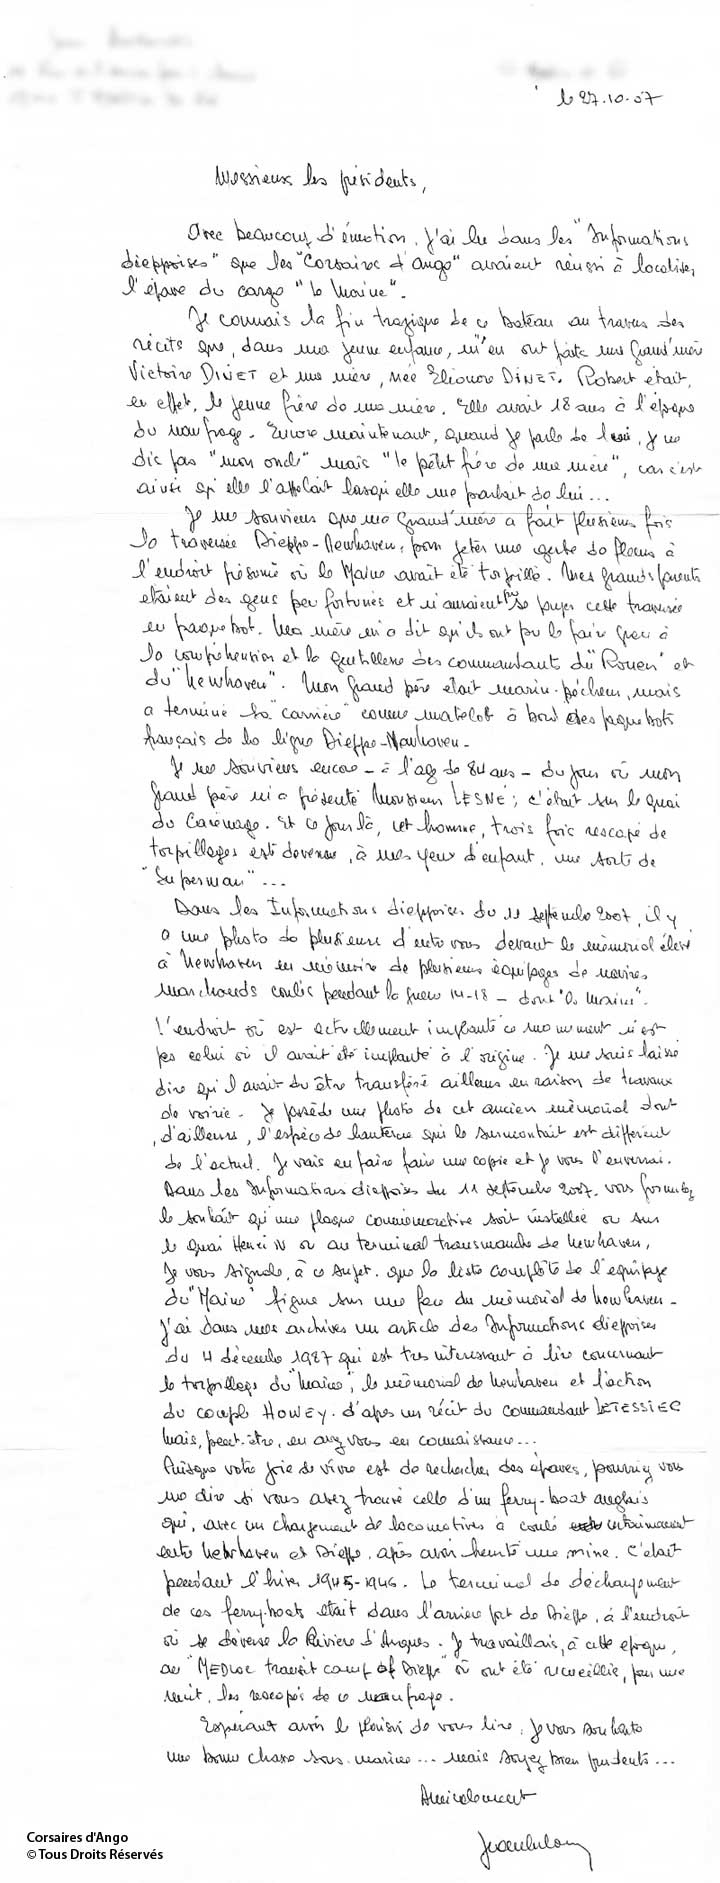 le 27.10.07
Messieurs les présidents,
Avec beaucoup d'émotion, j'ai lu dans les "Informations
dieppoises" que les "Corsaires d'Ango" avaient réussi à localiser
l'épave du cargo "le Maine".
Je connais la fin tragique de ce bateau au travers des
récits que, dans ma jeune enfance, m'en ont faits ma Grand'mère
Victoire DINET et ma mère, née Eléonore DINET. Robert était,
en effet, le jeune frère de ma mère. Elle avait 18 ans à l'époque
du naufrage. Encore maintenant, quand je parle de lui, je ne
dis pas "mon oncle" mais "le petit frère de ma mère", car c'est
ainsi qu'elle l'appelait lorsqu'elle me parlait de lui...
Je me souviens que ma Grand'mère a fait plusieurs fois
la traversée Dieppe-Newhaven, pour jeter une gerbe de fleurs à
l'endroit présumé où le Maine avait été torpillé. Mes grands parents
étaient des gens peu fortunés et n'auraient pu se payer cette traversée
en paquebot. Ma mère m'a dit qu'ils ont pu le faire grâce à
la compréhension et la gentillesse des commandants du "Rouen" et
du "Newhaven". Mon Grand père était marin-pêcheur, mais
a terminé sa "carrière" comme matelot à bord des paquebots
français de la ligne Dieppe-Newhaven.
Je me souviens encore - à l'age de 84 ans - du jour où mon
grand père m'a présenté Monsieur LESNÉ ; c'était sur le quai
du Carénage. Et ce jour là, cet homme, trois fois rescapé de
torpillages est devenu, à mes yeux d'enfant, une sorte de
"Superman"...
Dans les Informations dieppoises du 11 septembre 2007, il y
a une photo de plusieurs d'entre vous devant le mémorial élevé
à Newhaven en mémoire de plusieurs équipages de navires
marchands coulés pendant la guerre 14-18 - dont "le Maine".
L'endroit où est actuellement implanté ce monument n'est
pas celui où il avait été implanté à l'origine. Je me suis laissé
dire qu'il avait du être transféré ailleurs en raison de travaux
de voirie. Je possède une photo de cet ancien mémorial dont
, d'ailleurs, l'espèce de lanterne qui le surmontait est différent
de l'actuel. Je vais en faire faire une copie et je vous l'enverrai.
Dans les Informations dieppoises du 11 septembre 2007, vous formulez
le souhait qu'une plaque commémorative soit installée ou sur
le quai Henri IV ou au terminal transmanche de Newhaven,
Je vous signale, à ce sujet, que la liste complète de l'équipage
du "Maine" figure sur une face du mémorial de Newhaven.
J'ai dans mes archives un article des Informations dieppoises
du 4 décembre 1987 qui est très intéressant à lire concernant
le torpillage du "Maine", le mémorial de Newhaven et l'action
du couple HOWEY. d'après un récit du commandant LETESSIEC
Mais, peut-être, en avez vous eu connaissance...
Puisque votre joie de vivre est de rechercher des épaves, pourriez vous
me dire si vous avez trouvé celle d'un ferry-boat anglais
qui, avec un chargement de locomotives a coulé
entre Newhaven et Dieppe, après avoir heurté une mine. C'était
pendant l'hiver 1945-1946. Le terminal de déchargement
de ces ferry-boats était dans l'arrière port de Dieppe, à l'endroit
où se déverse la Rivière d'Arques. Je travaillais, à cette époque,
au "MEDLOC transit camp of Dieppe" où ont été recueillis, par une
nuit, les rescapés de ce naufrage.
Espérant avoir le plaisir de vous lire, je vous souhaite
une bonne chasse sous-marine... mais soyez bien prudents...
Amicalement
Corsaires d'Ango
© Tous Droits Réservés